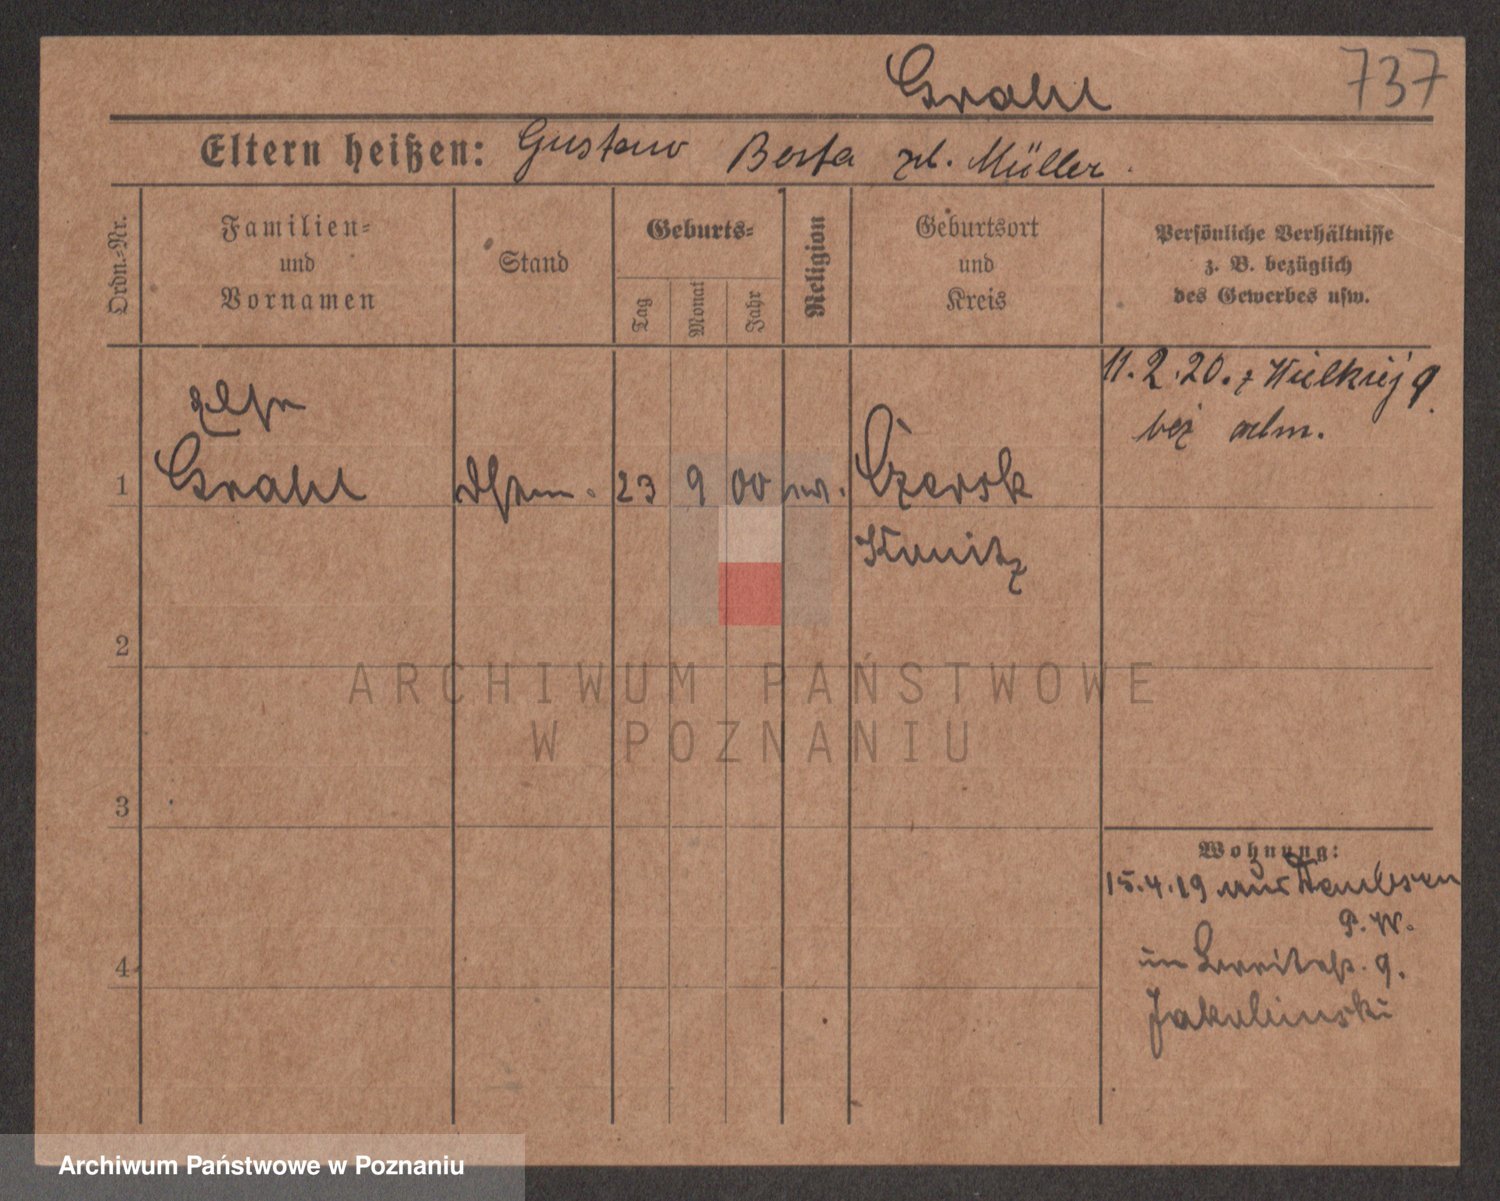 Grahl 737
Eltern heißen: Gustaw Berta Müller.
Ordn.-Nr.
Familien-
und
Vornamen
Stand
Geburts-
Tag
Monat
Jahr
Religion
Geburtsort
und
Kreis
Persönliche Verhältnisse
z. B. bezüglich
des Gewerbes usw.
11.2.20.
bez
1 Grahl 23 9 00 Czersk
Konitz
2
3
4
ARCHIWUM PAŃSTWOWE
W POZNANIU
Wohnung:
15.4.19 aus
P. W.
9.
Jakubinski
Archiwum Państwowe w Poznaniu